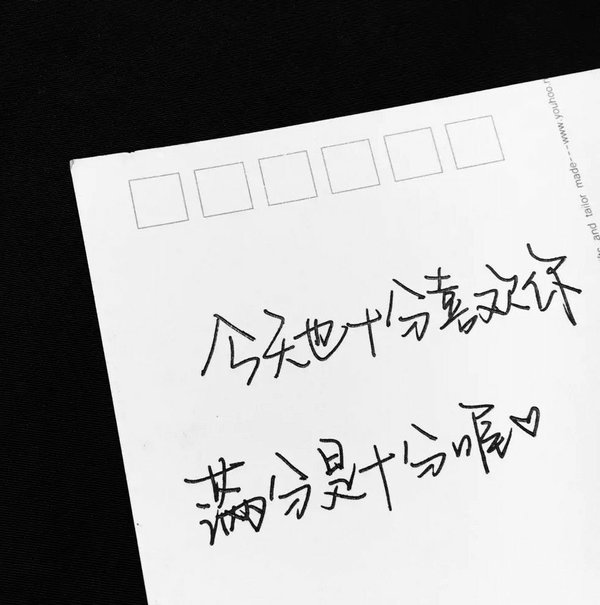 今天也十分喜欢你
满分是十分喔♡
and tailor made---www.youhoo.